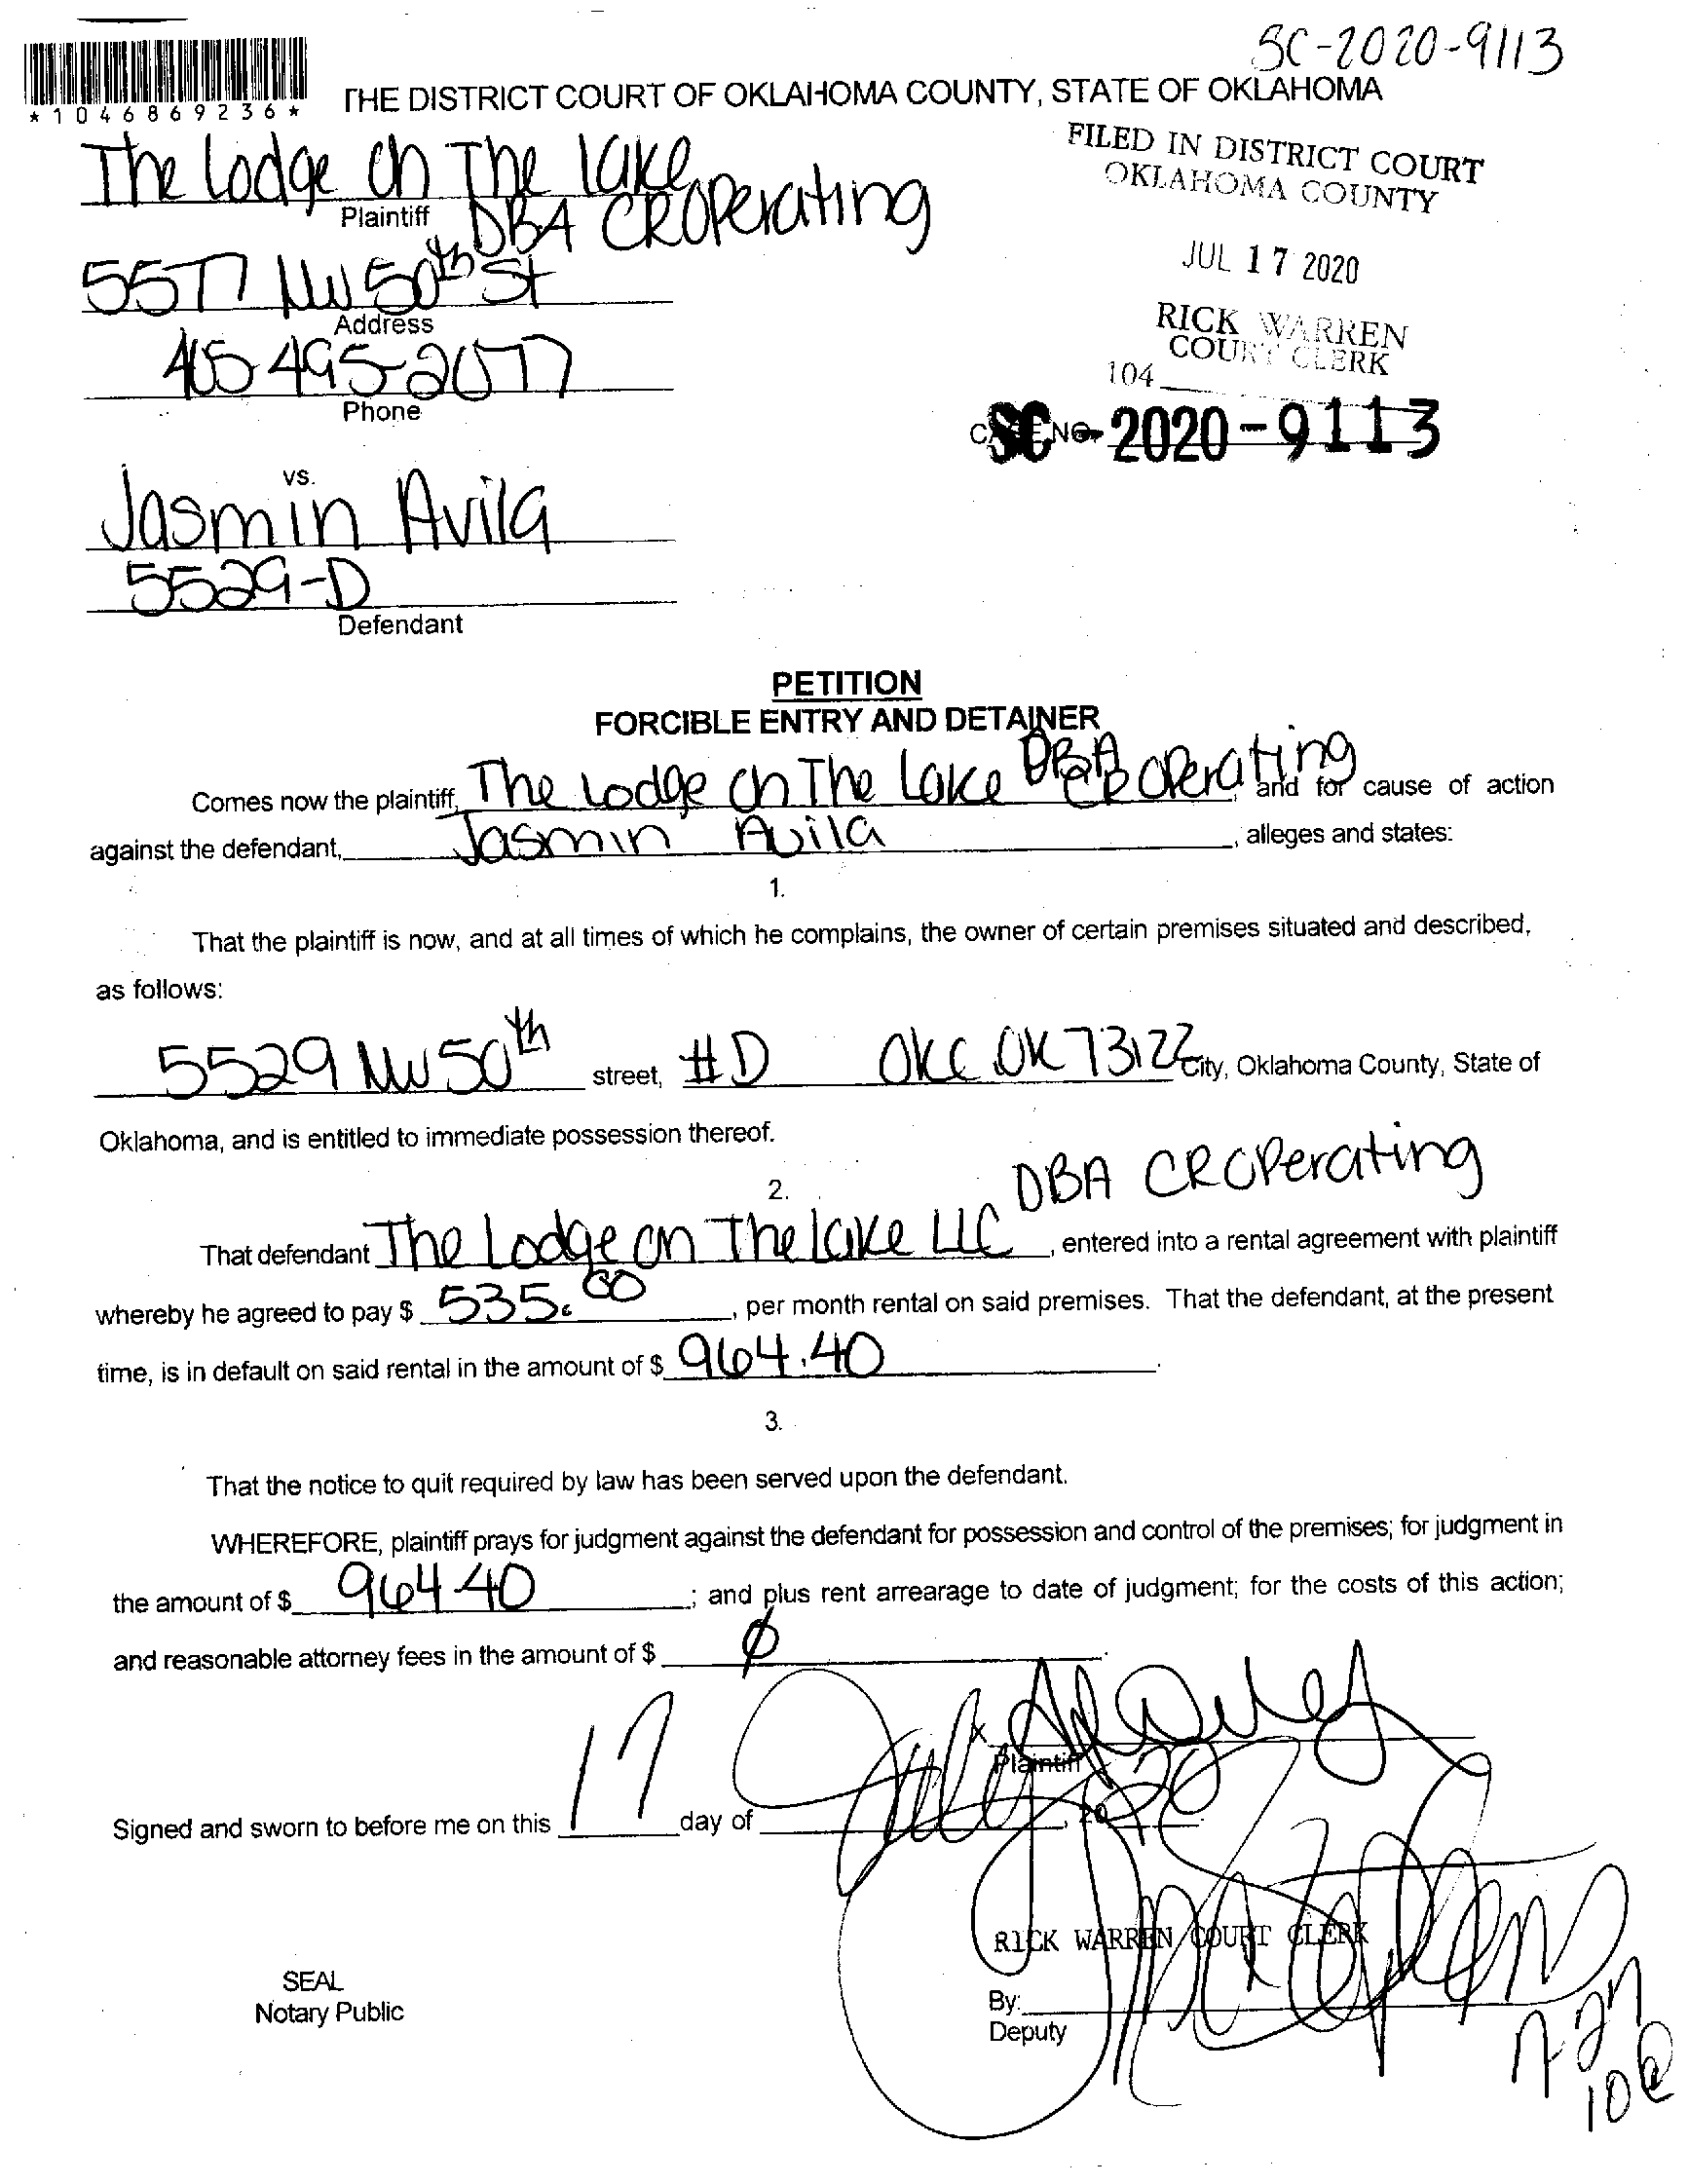 SC-2020-9113
*1046869236*
THE DISTRICT COURT OF OKLAHOMA COUNTY, STATE OF OKLAHOMA
FILED IN DISTRICT COURT
OKLAHOMA COUNTY
JUL 17 2020
RICK WARREN
COURT CLERK
104
The Lodge on The Lake
Plaintiff
DBA CROperating
5577 NW 50th St
Address
405-495-2077
Phone
CASE NO.
SC-2020-9113
vs.
Jasmin Avila
5529-D
Defendant
PETITION
FORCIBLE ENTRY AND DETAINER
Comes now the plaintiff, The Lodge on The Lake DBA CR Operating, and for cause of action
against the defendant, Jasmin Avila, alleges and states:
1.
That the plaintiff is now, and at all times of which he complains, the owner of certain premises situated and described,
as follows:
5529 NW 50th street, #D OKC OK 73122 City, Oklahoma County, State of
Oklahoma, and is entitled to immediate possession thereof.
2.
DBA CROperating
That defendant The Lodge on The Lake LLC, entered into a rental agreement with plaintiff
whereby he agreed to pay $ 535.00, per month rental on said premises. That the defendant, at the present
time, is in default on said rental in the amount of $ 964.40.
3.
That the notice to quit required by law has been served upon the defendant.
WHEREFORE, plaintiff prays for judgment against the defendant for possession and control of the premises; for judgment in
the amount of $ 964.40; and plus rent arrearage to date of judgment; for the costs of this action;
and reasonable attorney fees in the amount of $ Ø.
X
Plaintiff
Signed and sworn to before me on this 17 day of July, 20 20.
RICK WARREN COURT CLERK
SEAL
Notary Public
By:
Deputy
7-27
10@